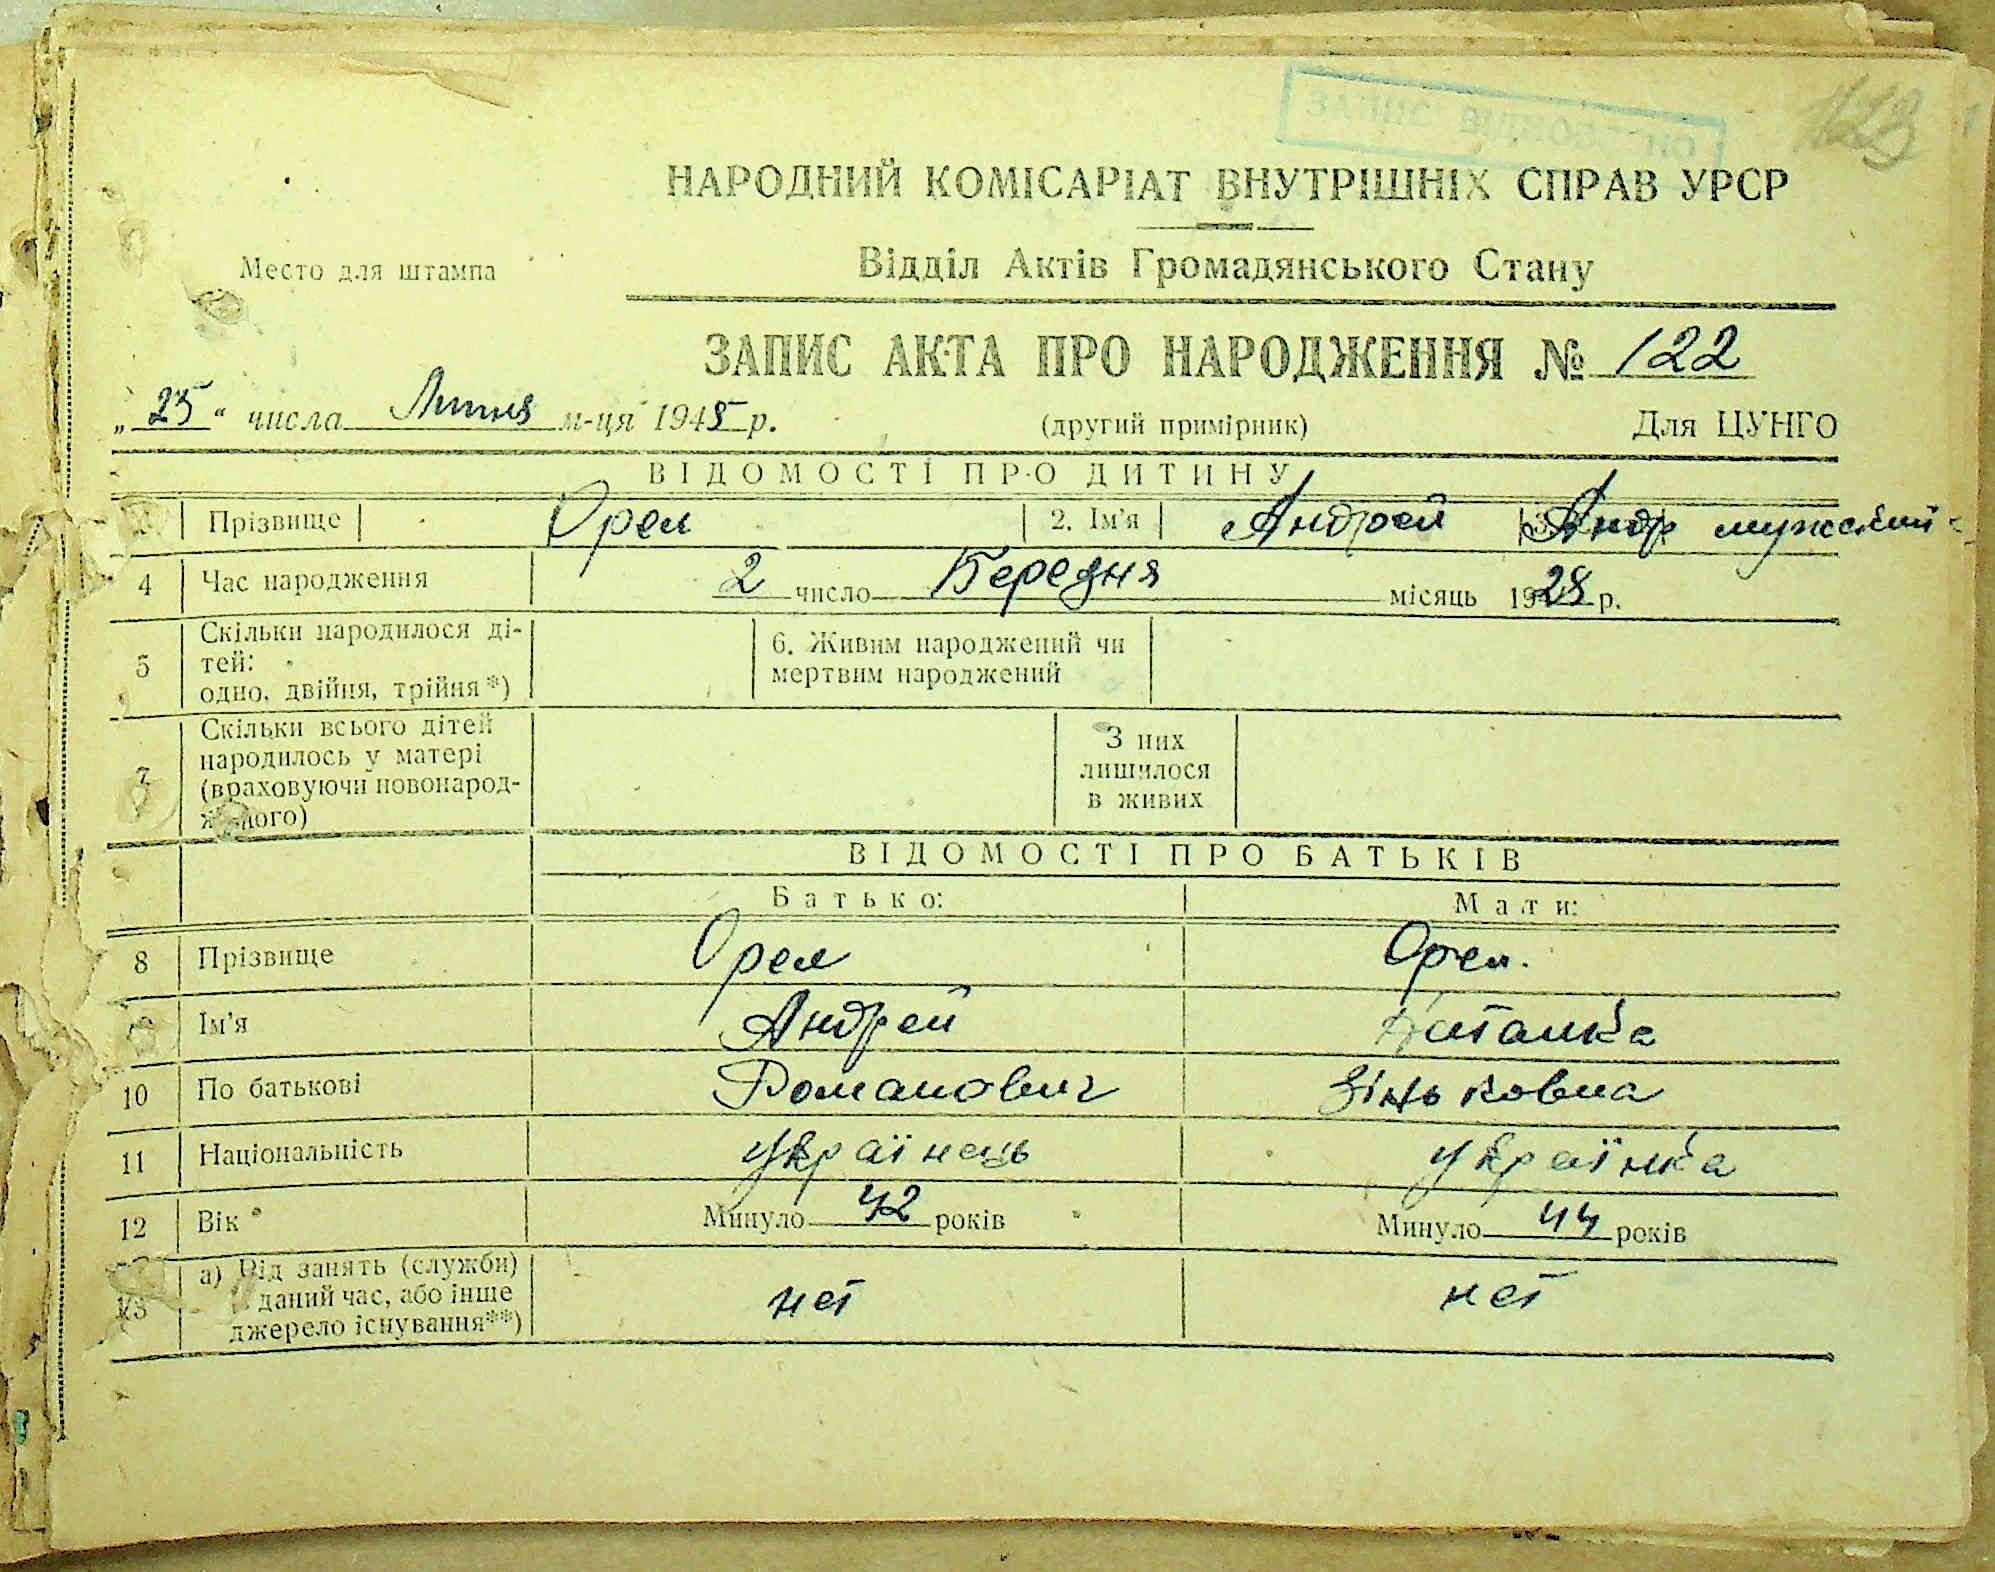 ЗАПИС ВІДНОВЛЕНО
123
НАРОДНИЙ КОМІСАРІАТ ВНУТРІШНІХ СПРАВ УРСР
Место для штампа
Відділ Актів Громадянського Стану
ЗАПИС АКТА ПРО НАРОДЖЕННЯ № 122
„25“ числа Липня м-ця 1945 р. (другий примірник) Для ЦУНГО
ВІДОМОСТІ ПРО ДИТИНУ
Прізвище Орел 2. Ім’я Андрей Андр мужский
4 Час народження 2 число Березня місяць 1928 р.
5 Скільки народилося ді-
тей:
одно, двійня, трійня*)
6. Живим народжений чи
мертвим народжений
7 Скільки всього дітей
народилось у матері
(враховуючи новонарод-
женого)
З них
лишилося
в живих
ВІДОМОСТІ ПРО БАТЬКІВ
Батько: Мати:
8 Прізвище Орел Орел.
9 Ім’я Андрей Наталка
10 По батькові Романович Зіньковна
11 Національність Українець Українка
12 Вік Минуло 42 років Минуло 44 років
13 а) Від занять (служби)
в даний час, або інше
джерело існування**)
нет нет